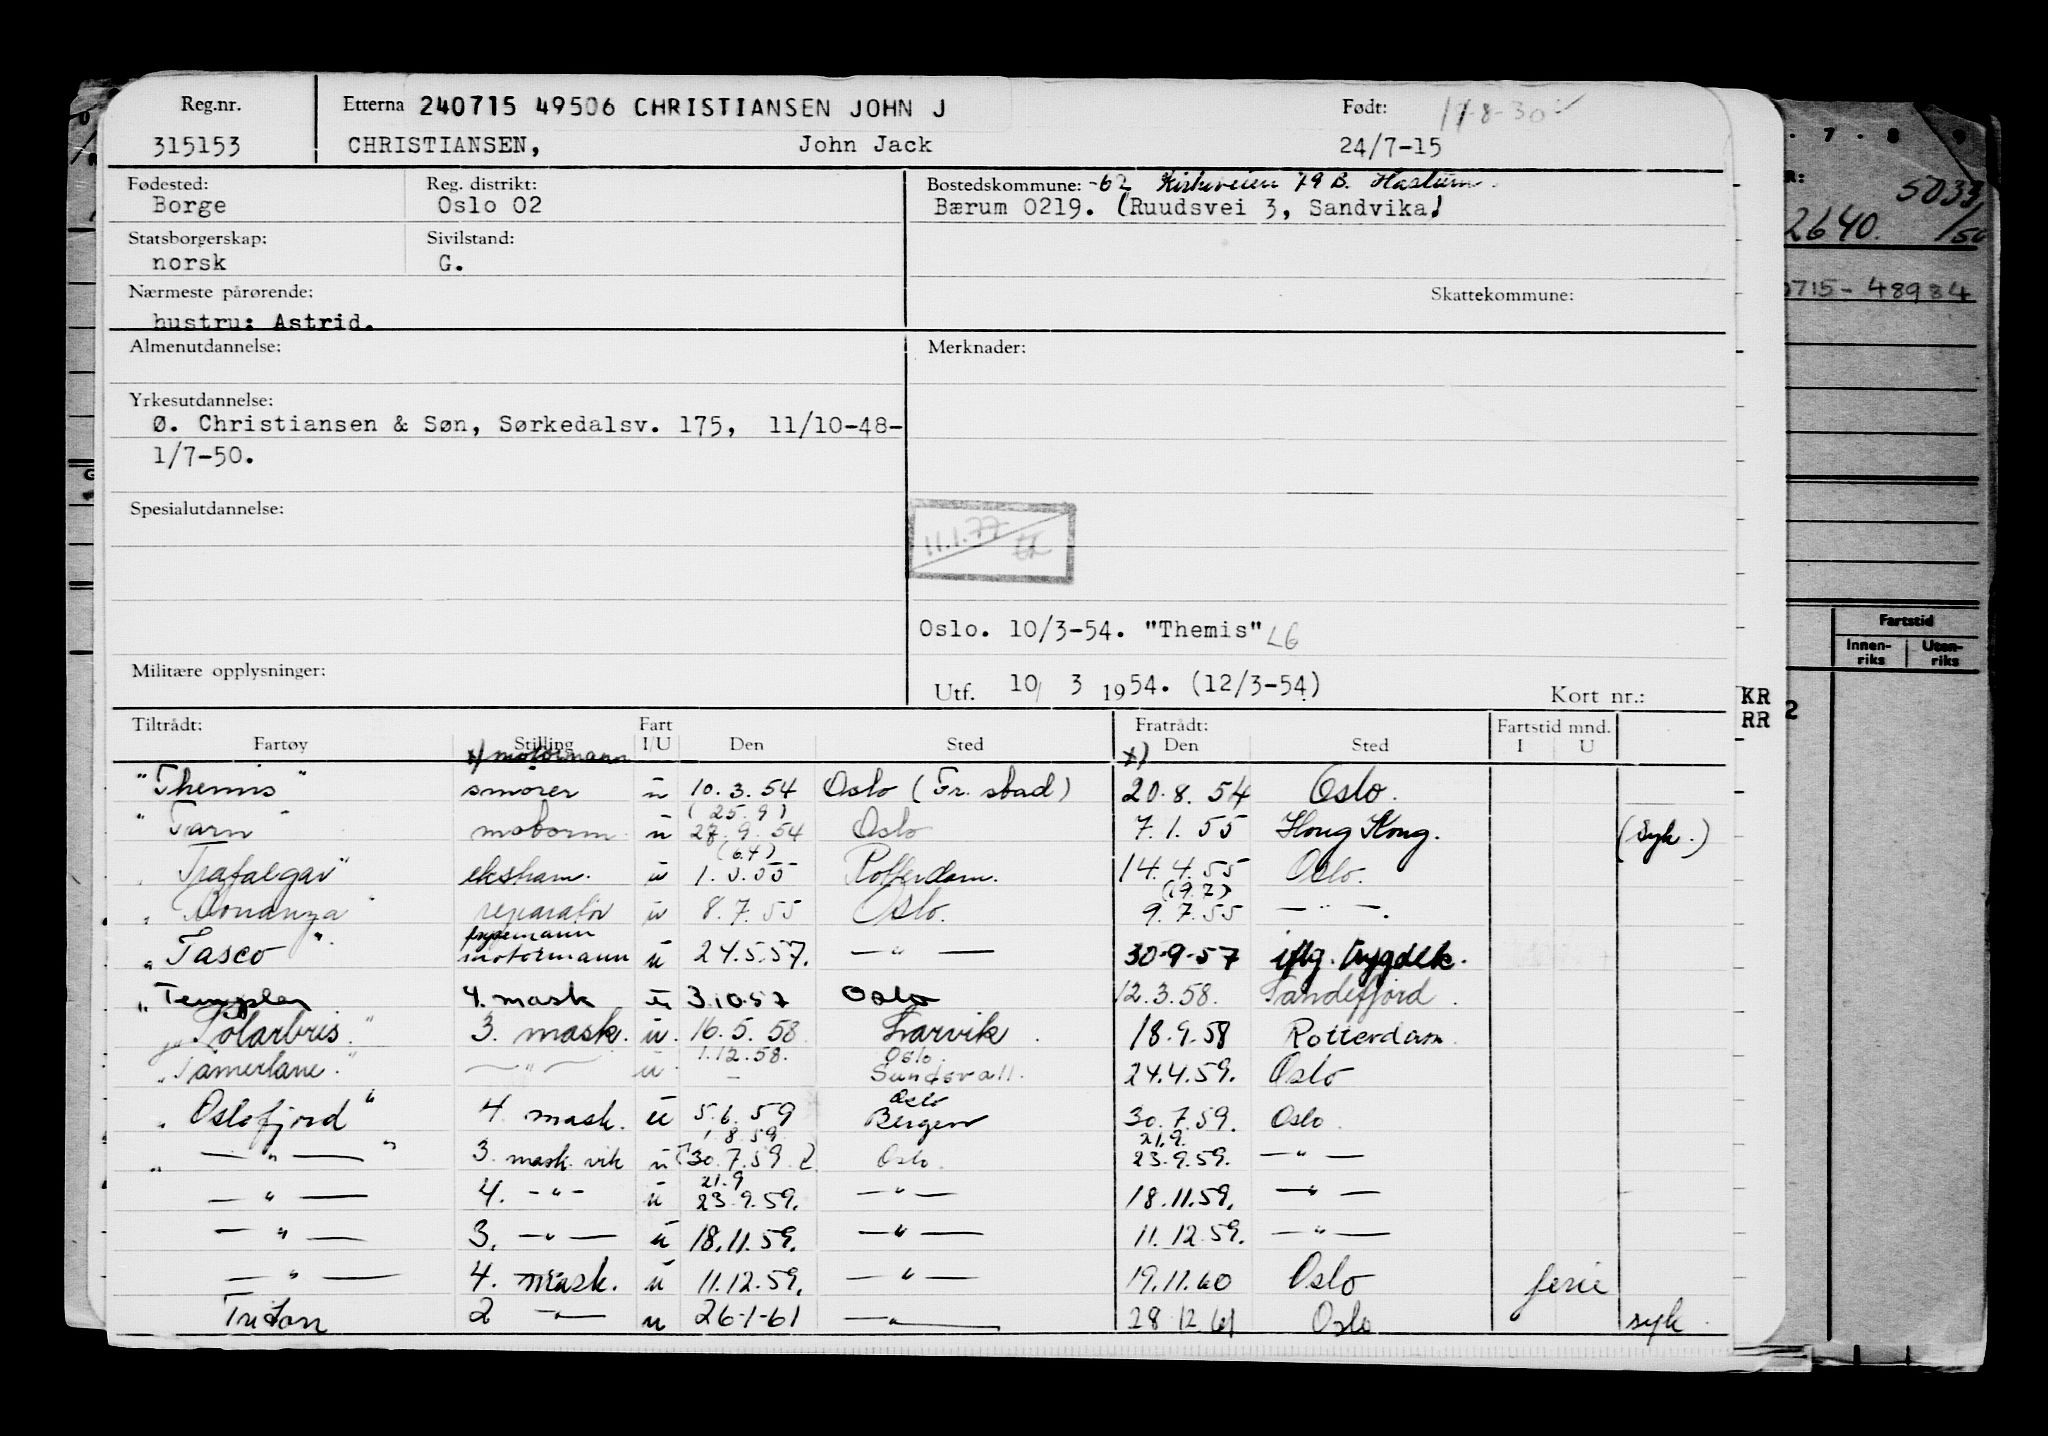 Reg.nr. Etterna 240715 49506 CHRISTIANSEN JOHN J Født: 17-8-30
315153 CHRISTIANSEN, John Jack 24/7-15
Fødested: Reg. distrikt: Bostedskommune: -62 Kirkeveien 79 B. Haslum.
Borge Oslo 02 Bærum 0219. (Ruudsvei 3, Sandvika)
Statsborgerskap: Sivilstand:
norsk G.
Nærmeste pårørende: Skattekommune:
hustru: Astrid.
Almenutdannelse: Merknader:
Yrkesutdannelse:
Ø. Christiansen & Søn, Sørkedalsv. 175, 11/10-48-
1/7-50.
Spesialutdannelse:
11.1.77
Oslo. 10/3-54. "Themis" LG
Militære opplysninger:
Utf. 10/ 3 1954. (12/3-54) Kort nr.:
Tiltrådt: Fart Fratrådt: Fartstid mnd.
Fartøy Stilling I/U Den Sted Den Sted I U
x) motormann x)
"Themis" smører u 10.3.54 Oslo (Fr.stad) 20.8.54 Oslo.
(25.9)
"Tarn" motorm u 28.9.54 Oslo 7.1.55 Hong Kong. (Syk.)
(6.4)
"Trafalgar" ekstram. u 1.3.55 Rotterdam. 14.4.55 Oslo.
(19.7)
"Bonanza" reparatør u 8.7.55 Oslo. 9.7.55 — " —.
"Tasco" motormann u 24.5.57. — " — 30-9-57 iflg. trygdek.
"Templar 4. mask u 3.10.57 Oslo 12.3.58. Sandefjord.
"Solarbris." 3. mask. u. 16.5.58 Larvik. 18.9.58 Rotterdam.
1.12.58. Oslo.
"Tamerlane." — " — u. — Sundsvall. 24.4.59. Oslo
Oslo
"Oslofjord" 4. mask. u 5.6.59 Bergen 30.7.59. Oslo.
1.8.59 21.9.
" — " — " 3. mask. vik u (30.7.59.) Oslo. 23.9.59. — " —
21.9
— " — 4. - " - u 23.9.59. — " — 18.11.59. — " —
— " — 3. — " — u 18.11.59. — " — 11.12.59. — " —
— " — 4. mask. u 11.12.59. — " — 19.11.60 Oslo ferie
Triton 2 — " — u 26-1-61 — " — 28 12 61 Oslo syk.
7 · 8 · 9
R: 5033/50
2640.
0715-48984
Fartstid
Innen-riks Uten-riks
KR
RR 2